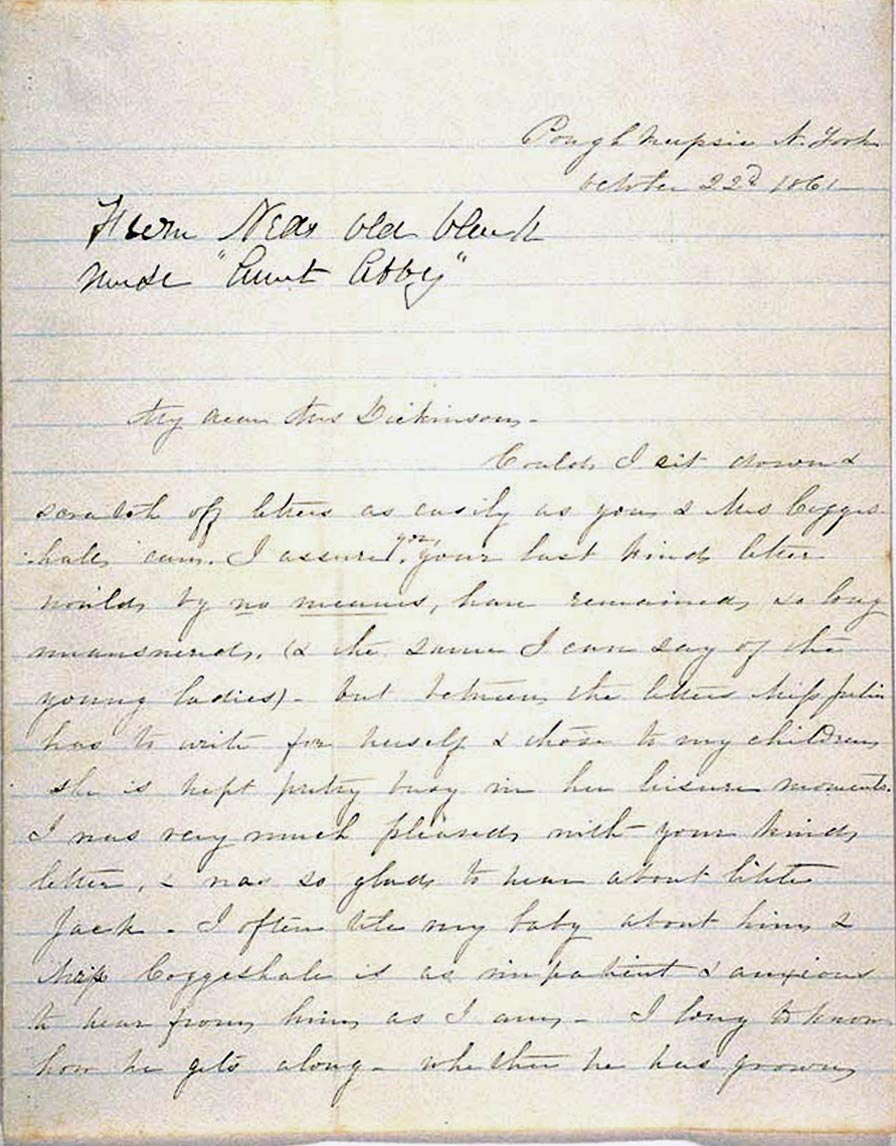 Poughkeepsie N. York
October 22d 1861
From Neds old black
nurse "Aunt Abby"
My dear Mrs Dickinson,
Could I sit down &
scratch off letters as easily as you & Mrs Cogges-
hale can. I assure you, your last kind letter
would by no means, have remained so long
unanswered. (& the same I can say of the
young ladies) - but between the letters Miss Julia
has to write for herself & those to my children
she is kept pretty busy in her leisure moments.
I was very much pleased with your kind
letter, & was so glad to hear about little
Jack - I often tele my baby about him &
Miss Coggeshale is as impatient & anxious
to hear from him as I am - I long to know
how he gets along - whether he has grown